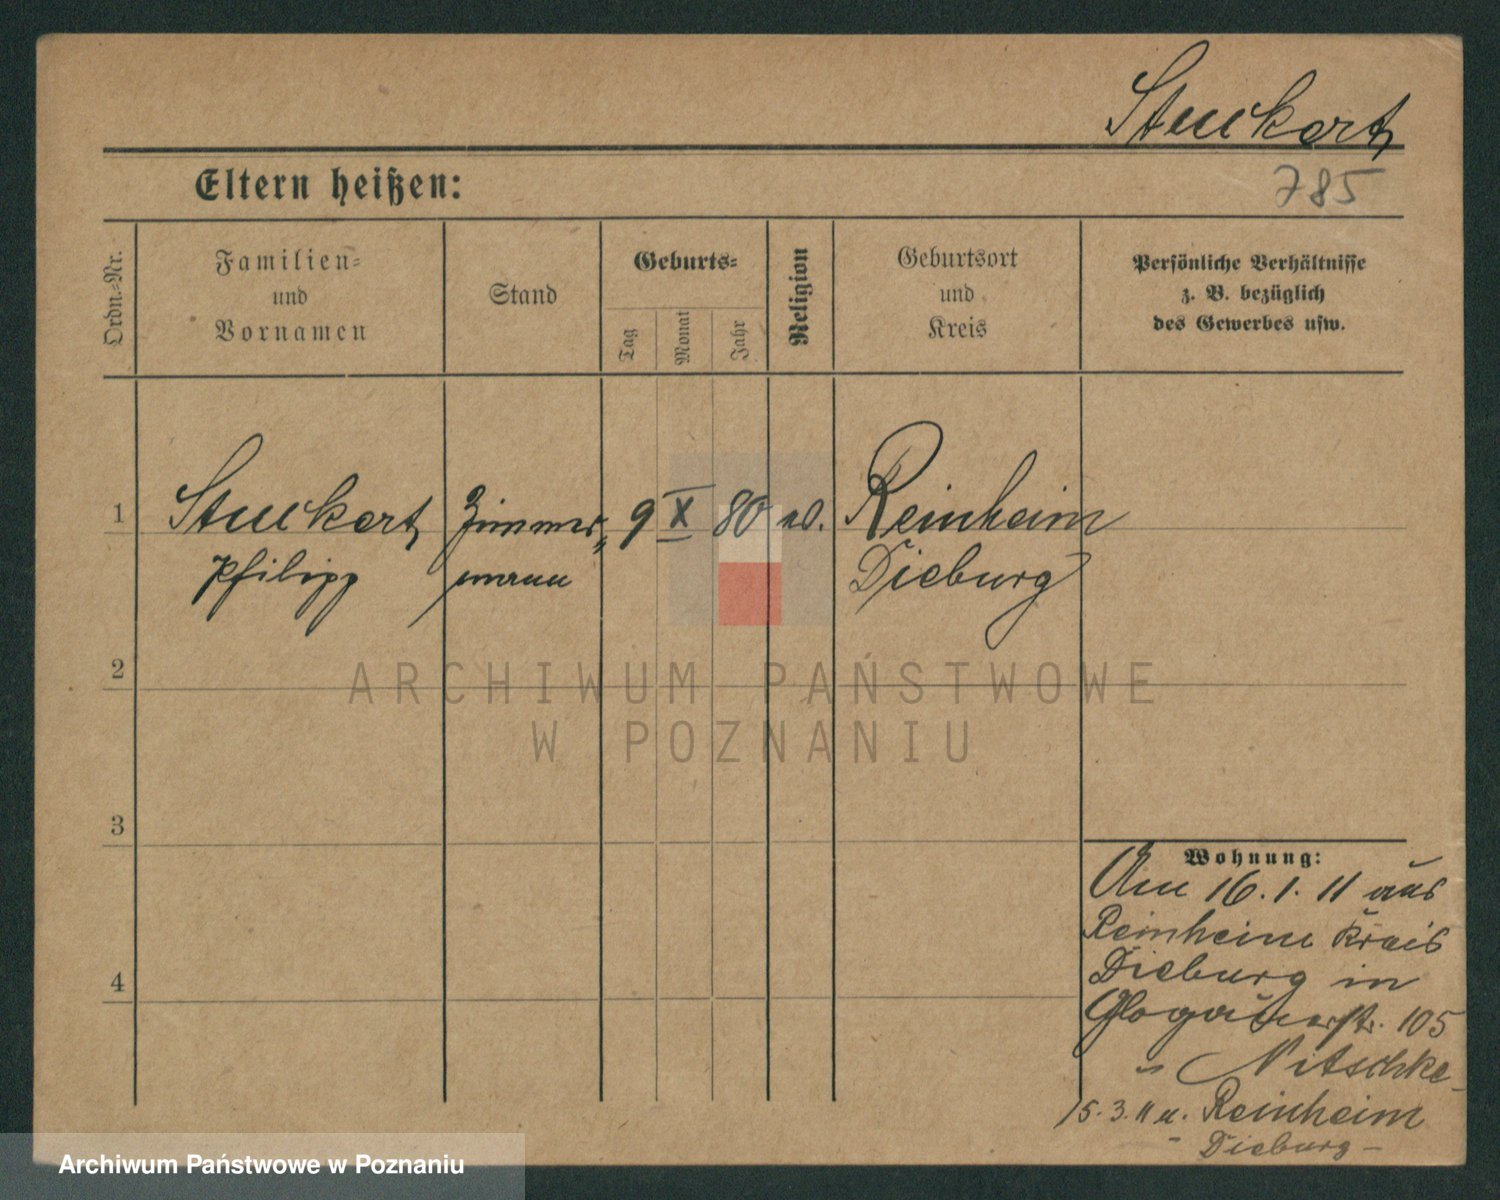 Stuckart
785
Eltern heißen:
Ordn.-Nr.
Familien-
und
Vornamen
Stand
Geburts-
Tag
Monat
Jahr
Religion
Geburtsort
und
Kreis
Persönliche Verhältnisse
z. B. bezüglich
des Gewerbes usw.
1 Stuckart Zimmer- 9 X 80 Reinheim
Philipp mann Dieburg
2
ARCHIWUM PAŃSTWOWE
W POZNANIU
3
Wohnung:
Am 16.1.11 aus
Reinheim Kreis
Dieburg in
Glogauerstr. 105
" Nitschke
15.3.11 n. Reinheim
Dieburg
4
Archiwum Państwowe w Poznaniu